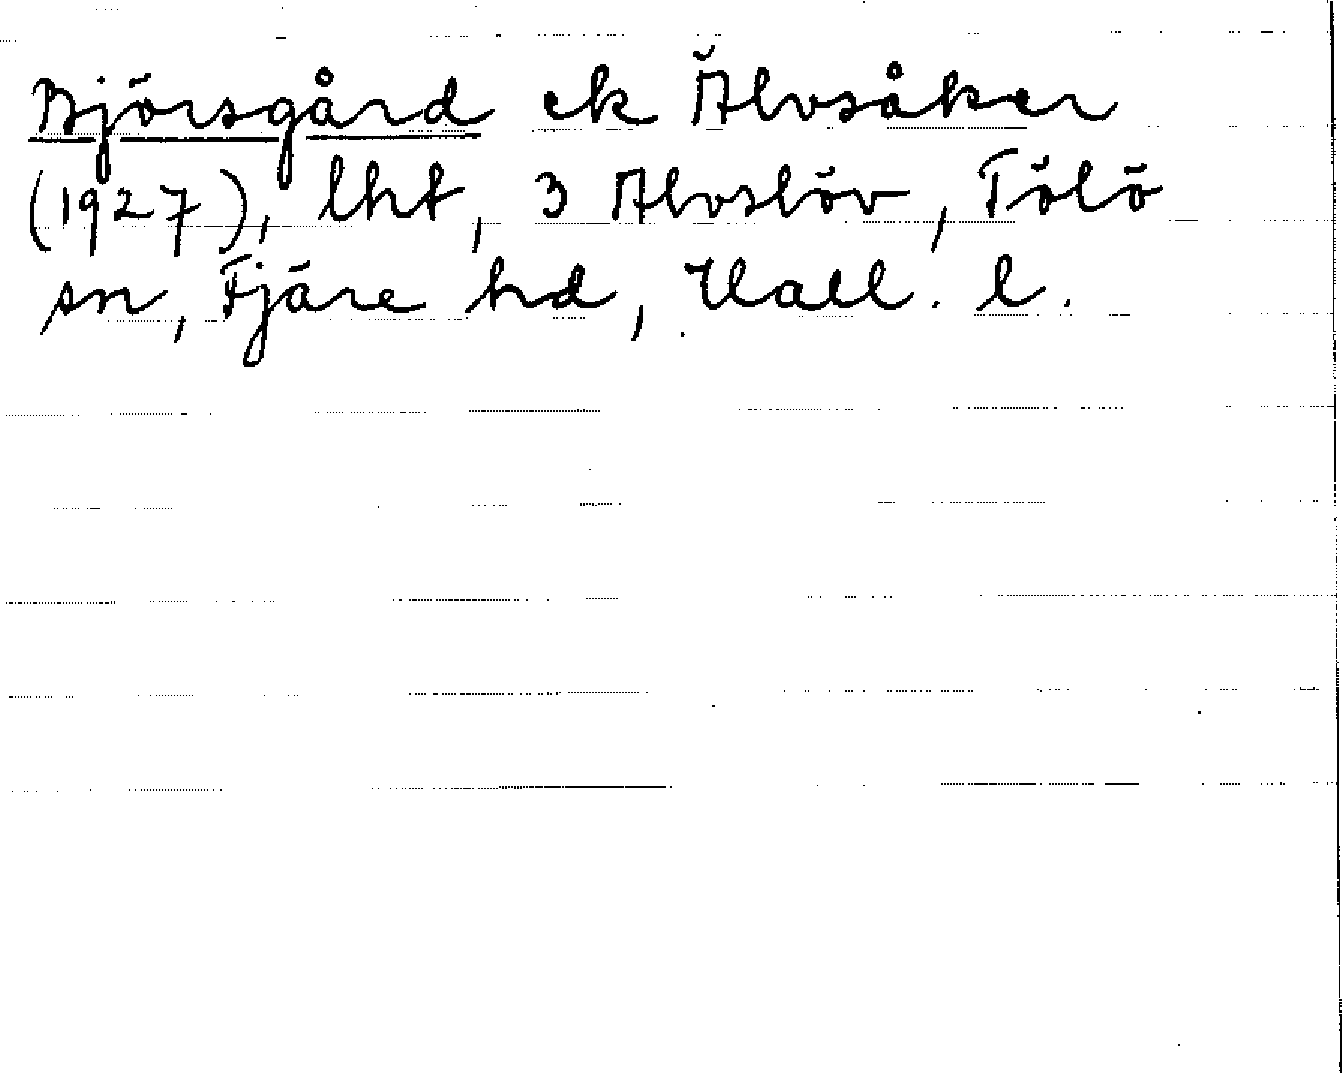 Björsgård ek Älvsåker
(1927), lht, 3 Alvslöv, Tölö
sn, Fjäre hd, Hall. l.